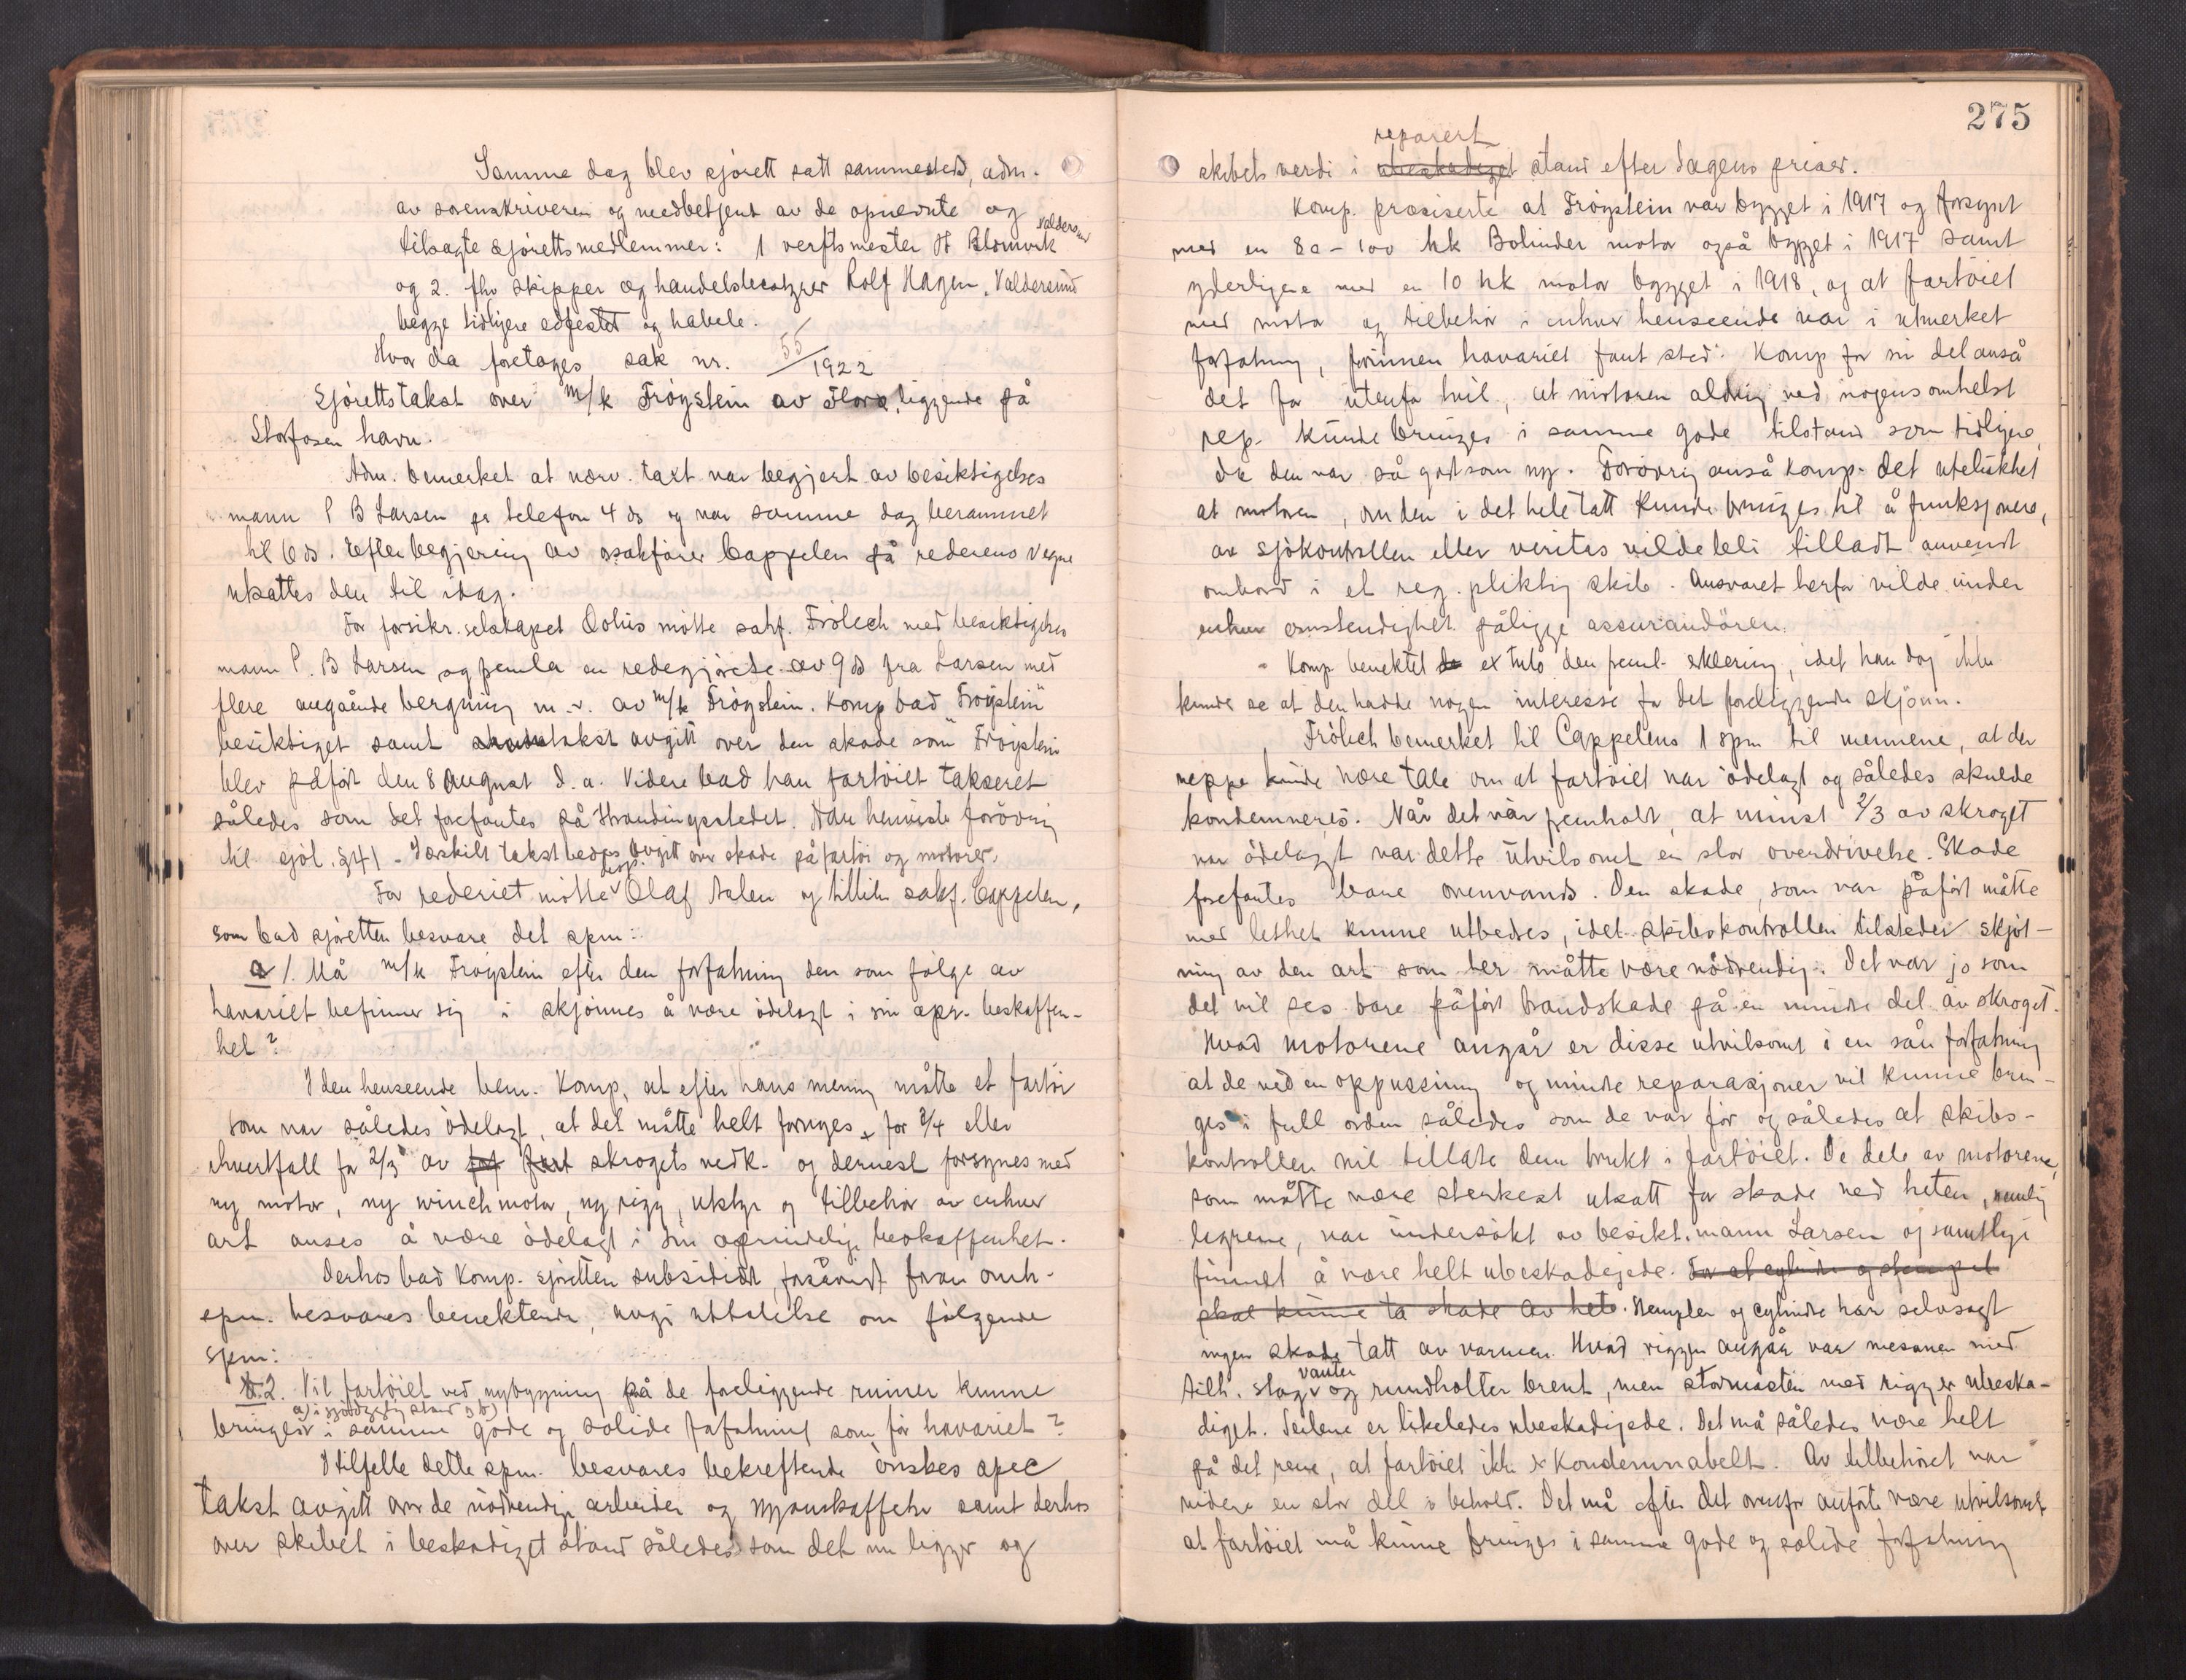 Samme dag blev sjörett satt sammesteds, adm.
av sorenskriveren og medbetjent av de opnevnte og
tilsagte sjörettsmedlemmer: 1 verftsmester H Blomvik Valdersund
og 2. fhv skipper og handelsbestyrer Rolf Hagen, Valdersund
begge tidligere edfestet og habele.
Hvor da foretages sak nr. 55/1922
Sjörettstakst over m/k Fröystein av Florö, liggende på
Storfosen havn.
Adm. bemerket at nærv. taxt var begjert av besiktigelses
mann P B Larsen pr telefon 4 ds og var samme dag berammet
til 6 ds. Efter begjering av osakförer Cappelen på rederens vegne
utsattes den til idag.
For forsikr. selskapet Æolus mötte sakf. Frölich med besiktigelses
mann P. B Larsen og freml a en redegjörelse av 9 ds fra Larsen med
flere angående bergning m. v. av m/k Fröystein. Komp bad "Fröystein"
besiktiget samt takst avgitt over den skade som "Fröystein
blev påfört den 8 August d. a. Videre bad han fartöiet takseret
således som det forefantes på Strandingsstedet. Han henviste forövrig
til sjöl. § 41 - Særskilt takst bedes avgitt over skade på fartöi og motorer.
For rederiet mötte disp. Olaf Aalen og tillike sakf. Cappelen,
som bad sjöretten besvare det spm:
a/. Må m/k Fröystein efter den forfatning den som fölge av
havariet befinner sig i skjönnes å være ödelagt i sin opr. beskaffen-
het?
I den henseende bem. Komp, at efter hans mening måtte et fartöi
som var således ödelagt, at det måtte helt fornyes for 3/4 eller
ihvertfall for 2/3 av skrogets vedk. og dernest forsynes med
ny motor, ny winchmotor, ny rigg, utstyr og tilbehör av enhver
art anses å være ödelagt i sin oprindelige beskaffenhet.
Derhos bad Komp. sjöretten subsidiært, forsåvidt foran omh.
spm. besvares benektende, avgi uttalelse om fölgende
spm:
b. 2. Vil fartöiet ved nybygning på de foreliggende ruiner kunne
bringes a) i sjödygtig stand og b) i samme gode og solide forfatning som för havariet?
I tilfelle dette spm. besvares bekreftende önskes spec
takst avgitt over de nödvendige arbeider og nyanskaffelser samt derhos
over skibet i beskadiget stand således som det nu ligger og
275
skibets verdi i ubeskadiget reparert stand efter dagens priser.
Komp. præsiserte at Fröystein var bygget i 1917 og forsynt
med en 80 - 100 hk Bolinder motor også bygget i 1917 samt
yderligere med en 10 hk motor bygget i 1918, og at fartöiet
med motor og tilbehör i enhver henseende var i utmerket
forfatning, forinnen havariet fant sted. Komp for sin del anså
det for utenfor tvil, at motoren aldrig ved nogensomhelst
rep. kunde bringes i samme gode tilstand som tidligere,
da den var så godt som ny. Forövrig anså Komp. det utelukket
at motoren, om den i det hele tatt kunde bringes til å funksjonere,
av sjökontrollen eller veritas vilde bli tilladt anvendt
ombord i et reg. pliktig skib. Ansvaret herfor vilde under
enhver omstendighet påligge assurandören.
Komp benektet ex tuto den freml. erklering, idet han dog ikke
kunde se at den hadde nogen interesse for det foreliggende skjönn.
Frölich bemerket til Cappelens 1 spm til mennene, at der
neppe kunde være tale om at fartöiet var ödelagt og således skulde
kondemneres. Når det var fremholdt, at minst 2/3 av skroget
var ödelagt var dette utvilsomt en stor overdrivelse. Skade
forefantes bare ovenvands. Den skade, som var påfört måtte
med lethet kunne utbedres, idet skibskontrollen tilsteder skjöt-
ning av den art som her måtte være nödvendig. Det var jo som
det vil ses bare påfört brandskade på en mindre del av skroget.
Hvad motorene angår er disse utvilsomt i en sån forfatning
at de ved en oppussing og mindre reparasjoner vil kunne brin-
ges i full orden således som de var för og således at skibs-
kontrollen vil tillate dem brukt i fartöiet. De dele av motorene,
som måtte være sterkest utsatt for skade ved heten, nemlig
legrene, var undersökt av besikt. mann Larsen og samtlige
funnet å være helt ubeskadigede. For at cylinder og stempel
skal kunne ta skade av hete. Stempler og cylindre har selvsagt
ingen skade tatt av varmen. Hvad riggen angår var mesanen med
tilh. stag vanter og rundholter brent, men stormasten med rigg er ubeska-
diget. Seilene er likeledes ubeskadigede. Det må således være helt
på det rene, at fartöiet ikke er kondemnabelt. Av tilbehöret var
videre en stor del i behold. Det må efter det ovenfor anförte være utvilsomt
at fartöiet må kunne bringes i samme gode og solide forfatning